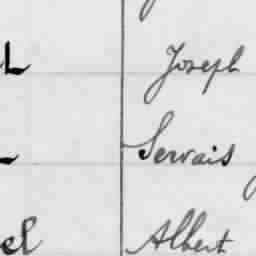 L Joseph
Servais
el Albert